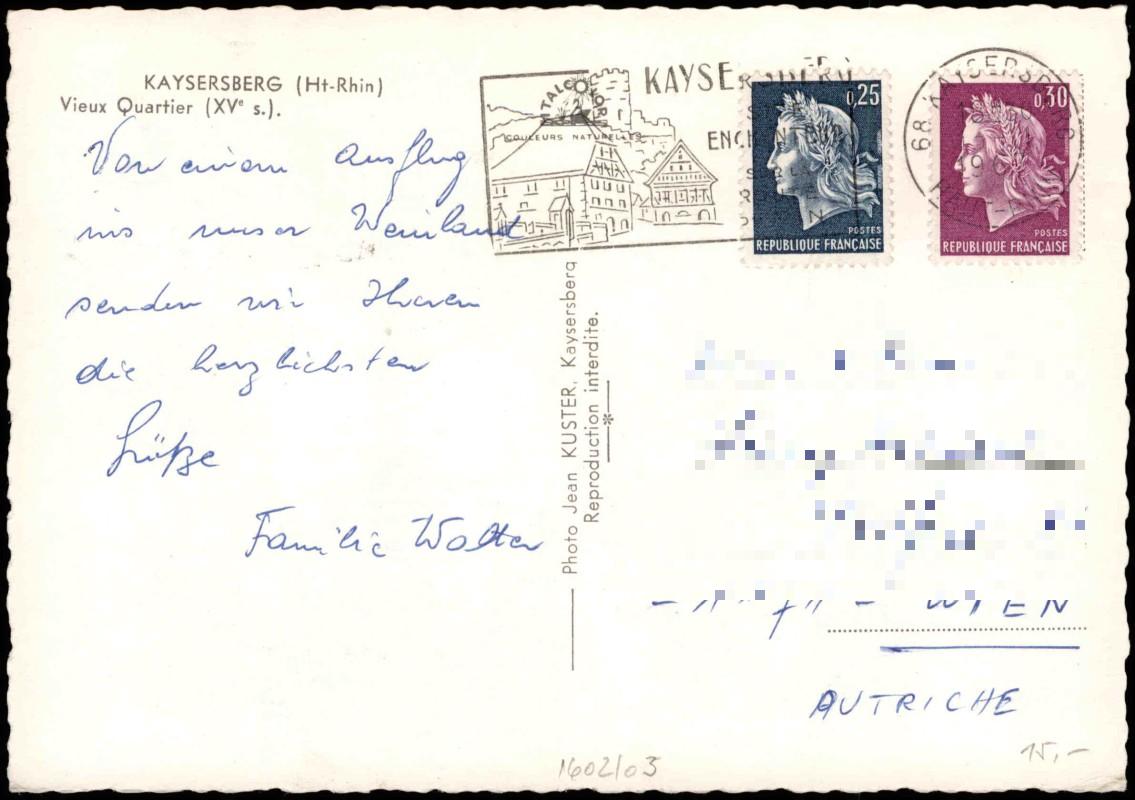 KAYSERSBERG (Ht-Rhin)
Vieux Quartier (XVᵉ s.).
Von einem Ausflug
ins unser Weinland
senden wir Ihnen
die herzlichsten
Grüße
Familie Walter
ITALCOLOR
COULEURS NATURELLES
KAYSERSBERG
0,25
POSTES
REPUBLIQUE FRANÇAISE
0,30
POSTES
REPUBLIQUE FRANÇAISE
68 KAYSERSBERG
Photo Jean KUSTER, Kaysersberg
Reproduction interdite.
WIEN
AUTRICHE
1602/03
15,-